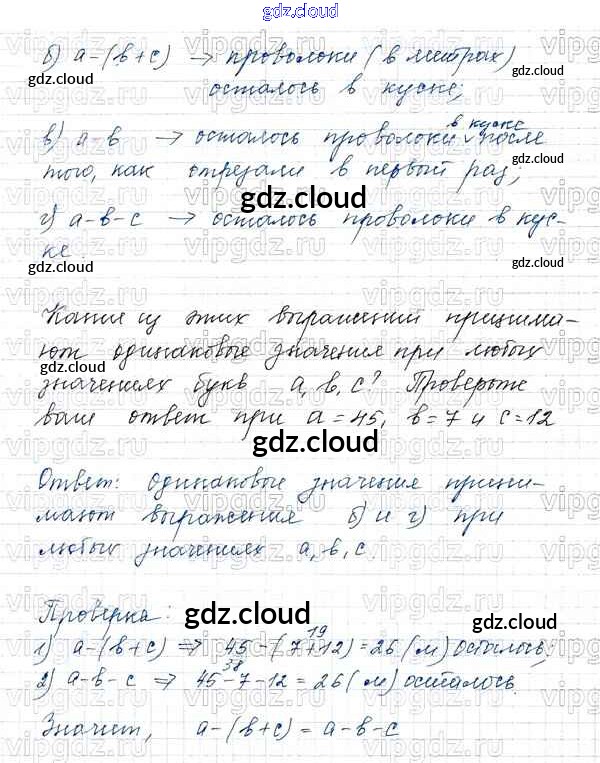 gdz.cloud
gdz.cloud
б) a-(в+c) → проволоки (в метрах)
gdz.cloud
gdz.cloud
осталось в куске;
в куске
в) a-в → осталось проволоки после
gdz.cloud
gdz.cloud
того, как отрезали в первый раз;
gdz.cloud
г) a-в-c → осталось проволоки в кус-
ке.
gdz.cloud
gdz.cloud
Какие из этих выражений принима-
ют одинаковые значения при любых
gdz.cloud
значениях букв a, в, c? Проверьте
ваш ответ при a=45, в=7 и c=12
gdz.cloud
Ответ: одинаковые значения прини-
мают выражения б) и г) при
любых значениях a, в, c.
gdz.cloud
Проверка:
gdz.cloud
19
1) a-(в+c) ⇒ 45-(7+12)=26(м) осталось;
38
2) a-в-c ⇒ 45-7-12=26(м) осталось.
Значит, a-(в+c)=a-в-c
gdz.cloud